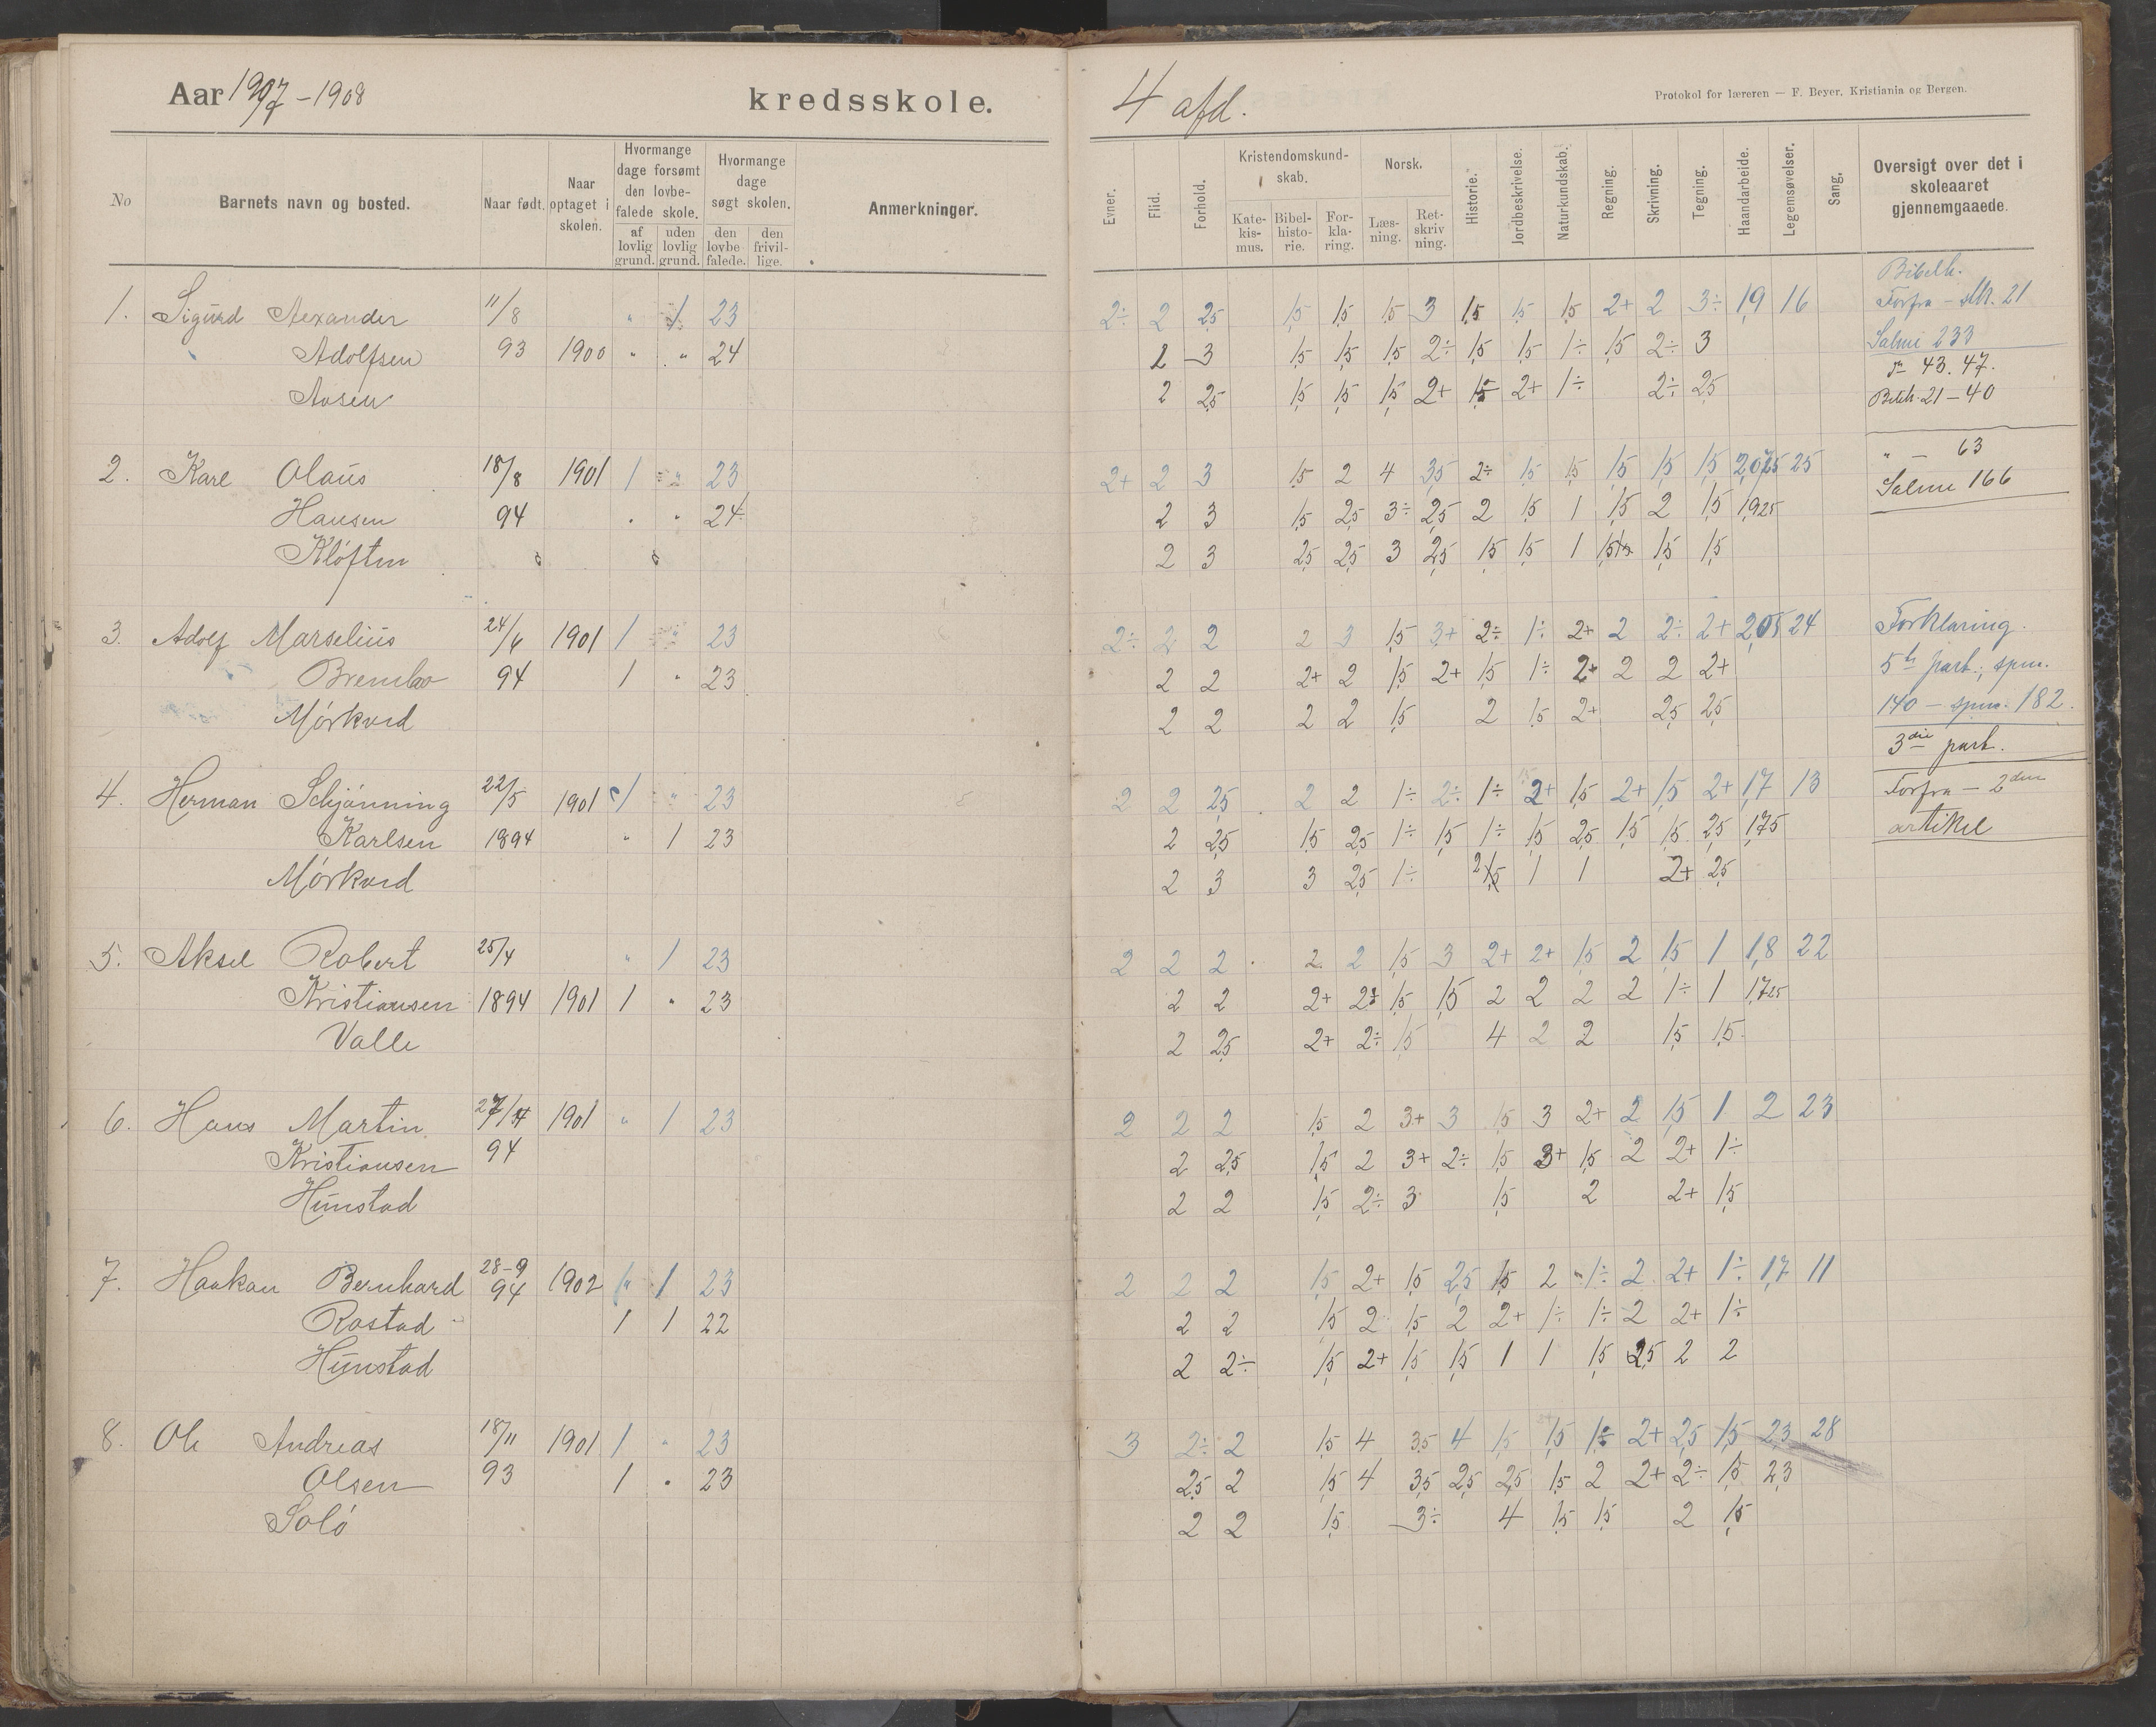 Aar 1907-1908 kredsskole.
4 afd.
Protokol for læreren — F. Beyer, Kristiania og Bergen.
No
Barnets navn og bosted.
Naar født.
Naar optaget i skolen.
Hvormange dage forsømt den lovbefalede skole.
af lovlig grund.
uden lovlig grund.
Hvormange dage søgt skolen.
den lovbefalede.
den frivillige.
Anmerkninger.
Evner.
Flid.
Forhold.
Kristendomskundskab.
Katekismus.
Bibelhistorie.
Forklaring.
Norsk.
Læsning.
Retskrivning.
Historie.
Jordbeskrivelse.
Naturkundskab.
Regning.
Skrivning.
Tegning.
Haandarbeide.
Legemsøvelser.
Sang.
Oversigt over det i skoleaaret gjennemgaaede.
1. Sigurd Alexander 11/8 " 1 23 2÷ 2 2,5 1,5 1,5 1,5 3 1,5 1,5 1,5 2+ 2 3÷ 1,9 16
Adolfsen 93 1900 " " 24 2 3 1,5 1,5 1,5 2÷ 1,5 1,5 1÷ 1,5 2÷ 3
Aasen 2 2,5 1,5 1,5 1,5 2+ 1,5 2+ 1÷ 2÷ 2,5
2. Karl Olaus 18/8 1901 1 " 23 2+ 2 3 1,5 2 4 3,5 2÷ 1,5 1,5 1,5 1,5 1,5 2,075 25
Hansen 94 " " 24 2 3 1,5 2,5 3÷ 2,5 2 1,5 1 1,5 2 1,5 1,925
Kløften 2 3 2,5 2,5 3 2,5 1,5 1,5 1 1,5 1,5 1,5
3. Adolf Marselius 24/6 1901 1 " 23 2÷ 2 2 2 3 1,5 3+ 2÷ 1÷ 2+ 2 2÷ 2+ 2,05 24
Brembo 94 1 " 23 2 2 2+ 2 1,5 2+ 1,5 1÷ 2+ 2 2 2+
Mørkved 2 2 2 2 1,5 2 1,5 2+ 2,5 2,5
4. Herman Schjønning 22/5 1901 1 " 23 2 2 2,5 2 2 1÷ 2÷ 1÷ 2+ 1,5 2+ 1,5 2+ 1,7 13
Karlsen 1894 " 1 23 2 2,5 1,5 2,5 1÷ 1,5 1÷ 1,5 2,5 1,5 1,5 2,5 1,75
Mørkved 2 3 3 2,5 1÷ 2 1 1 2+ 2,5
5. Aksel Robert 25/4 " 1 23 2 2 2 2 2 1,5 3 2+ 2+ 1,5 2 1,5 1 1,8 22
Kristiansen 1894 1901 1 " 23 2 2 2+ 2÷ 1,5 1,5 2 2 2 2 1÷ 1 1,725
Valle 2 2,5 2+ 2÷ 1,5 4 2 2 1,5 1,5
6. Hans Martin 27/4 1901 " 1 23 2 2 2 1,5 2 3+ 3 1,5 3 2+ 2 1,5 1 2 23
Kristiansen 94 2 2,5 1,5 2 3+ 2÷ 1,5 3+ 1,5 2 2+ 1÷
Hunstad 2 2 1,5 2÷ 3 1,5 2 2+ 1,5
7. Haakon Bernhard 28-9 94 1902 " 1 23 2 2 2 1,5 2+ 1,5 2,5 1,5 2 1÷ 2 2+ 1÷ 1,7 11
Rostad 1 1 22 2 2 1,5 2 1,5 2 2+ 1÷ 1÷ 2 2+ 1÷
Hunstad 2 2÷ 1,5 2+ 1,5 1,5 1 1 1,5 2,5 2 2
8. Ole Andreas 18/11 1901 1 " 23 3 2÷ 2 1,5 4 3,5 4 1,5 1,5 1÷ 2+ 2,5 1,5 2,3 28
Olsen 93 1 " 23 2,5 2 1,5 4 3,5 2,5 2,5 1,5 2 2+ 2÷ 1,5 2,3
Solø 2 2 1,5 3÷ 4 1,5 1,5 2 1,5
Bibelh.
Forfra – stk. 21
Salme 233
43. 47.
Bibelh. 21–40
" – 63
Salme 166
Forklaring.
5te part., spm.
140 – spm. 182.
3die part.
Forfra – 2den
artikel